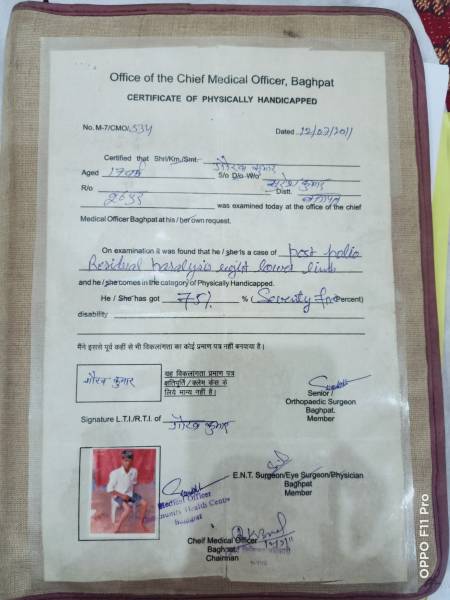 Office of the Chief Medical Officer, Baghpat
CERTIFICATE OF PHYSICALLY HANDICAPPED
No. M-7/CMO/ 534 Dated 12/07/2011
Certified that Shri/Km./Smt. गौरव कुमार
Aged S/o D/o W/o कुमार
R/o Distt. बागपत
was examined today at the office of the chief
Medical Officer Baghpat at his / her own request.
On examination it was found that he / she is a case of post polio
Residual paralysis right lower limb
and he / she comes in the catagory of Physically Handicapped.
He / She has got 75% % (Seventy five Percent)
disability
मैंने इससे पूर्व कहीं से भी विकलांगता का कोई प्रमाण पत्र नहीं बनवाया है।
गौरव कुमार
यह विकलांगता प्रमाण पत्र
क्षतिपूर्ति / क्लेम केस के
लिये मान्य नहीं है।
Senior /
Orthopaedic Surgeon
Baghpat.
Member
Signature L.T.I./R.T.I. of गौरव कुमार
E.N.T. Surgeon/Eye Surgeon/Physician
Baghpat
Member
Medical Officer
Community Health Centre
Cheif Medical Officer
Baghpat
Chairman
OPPO F11 Pro